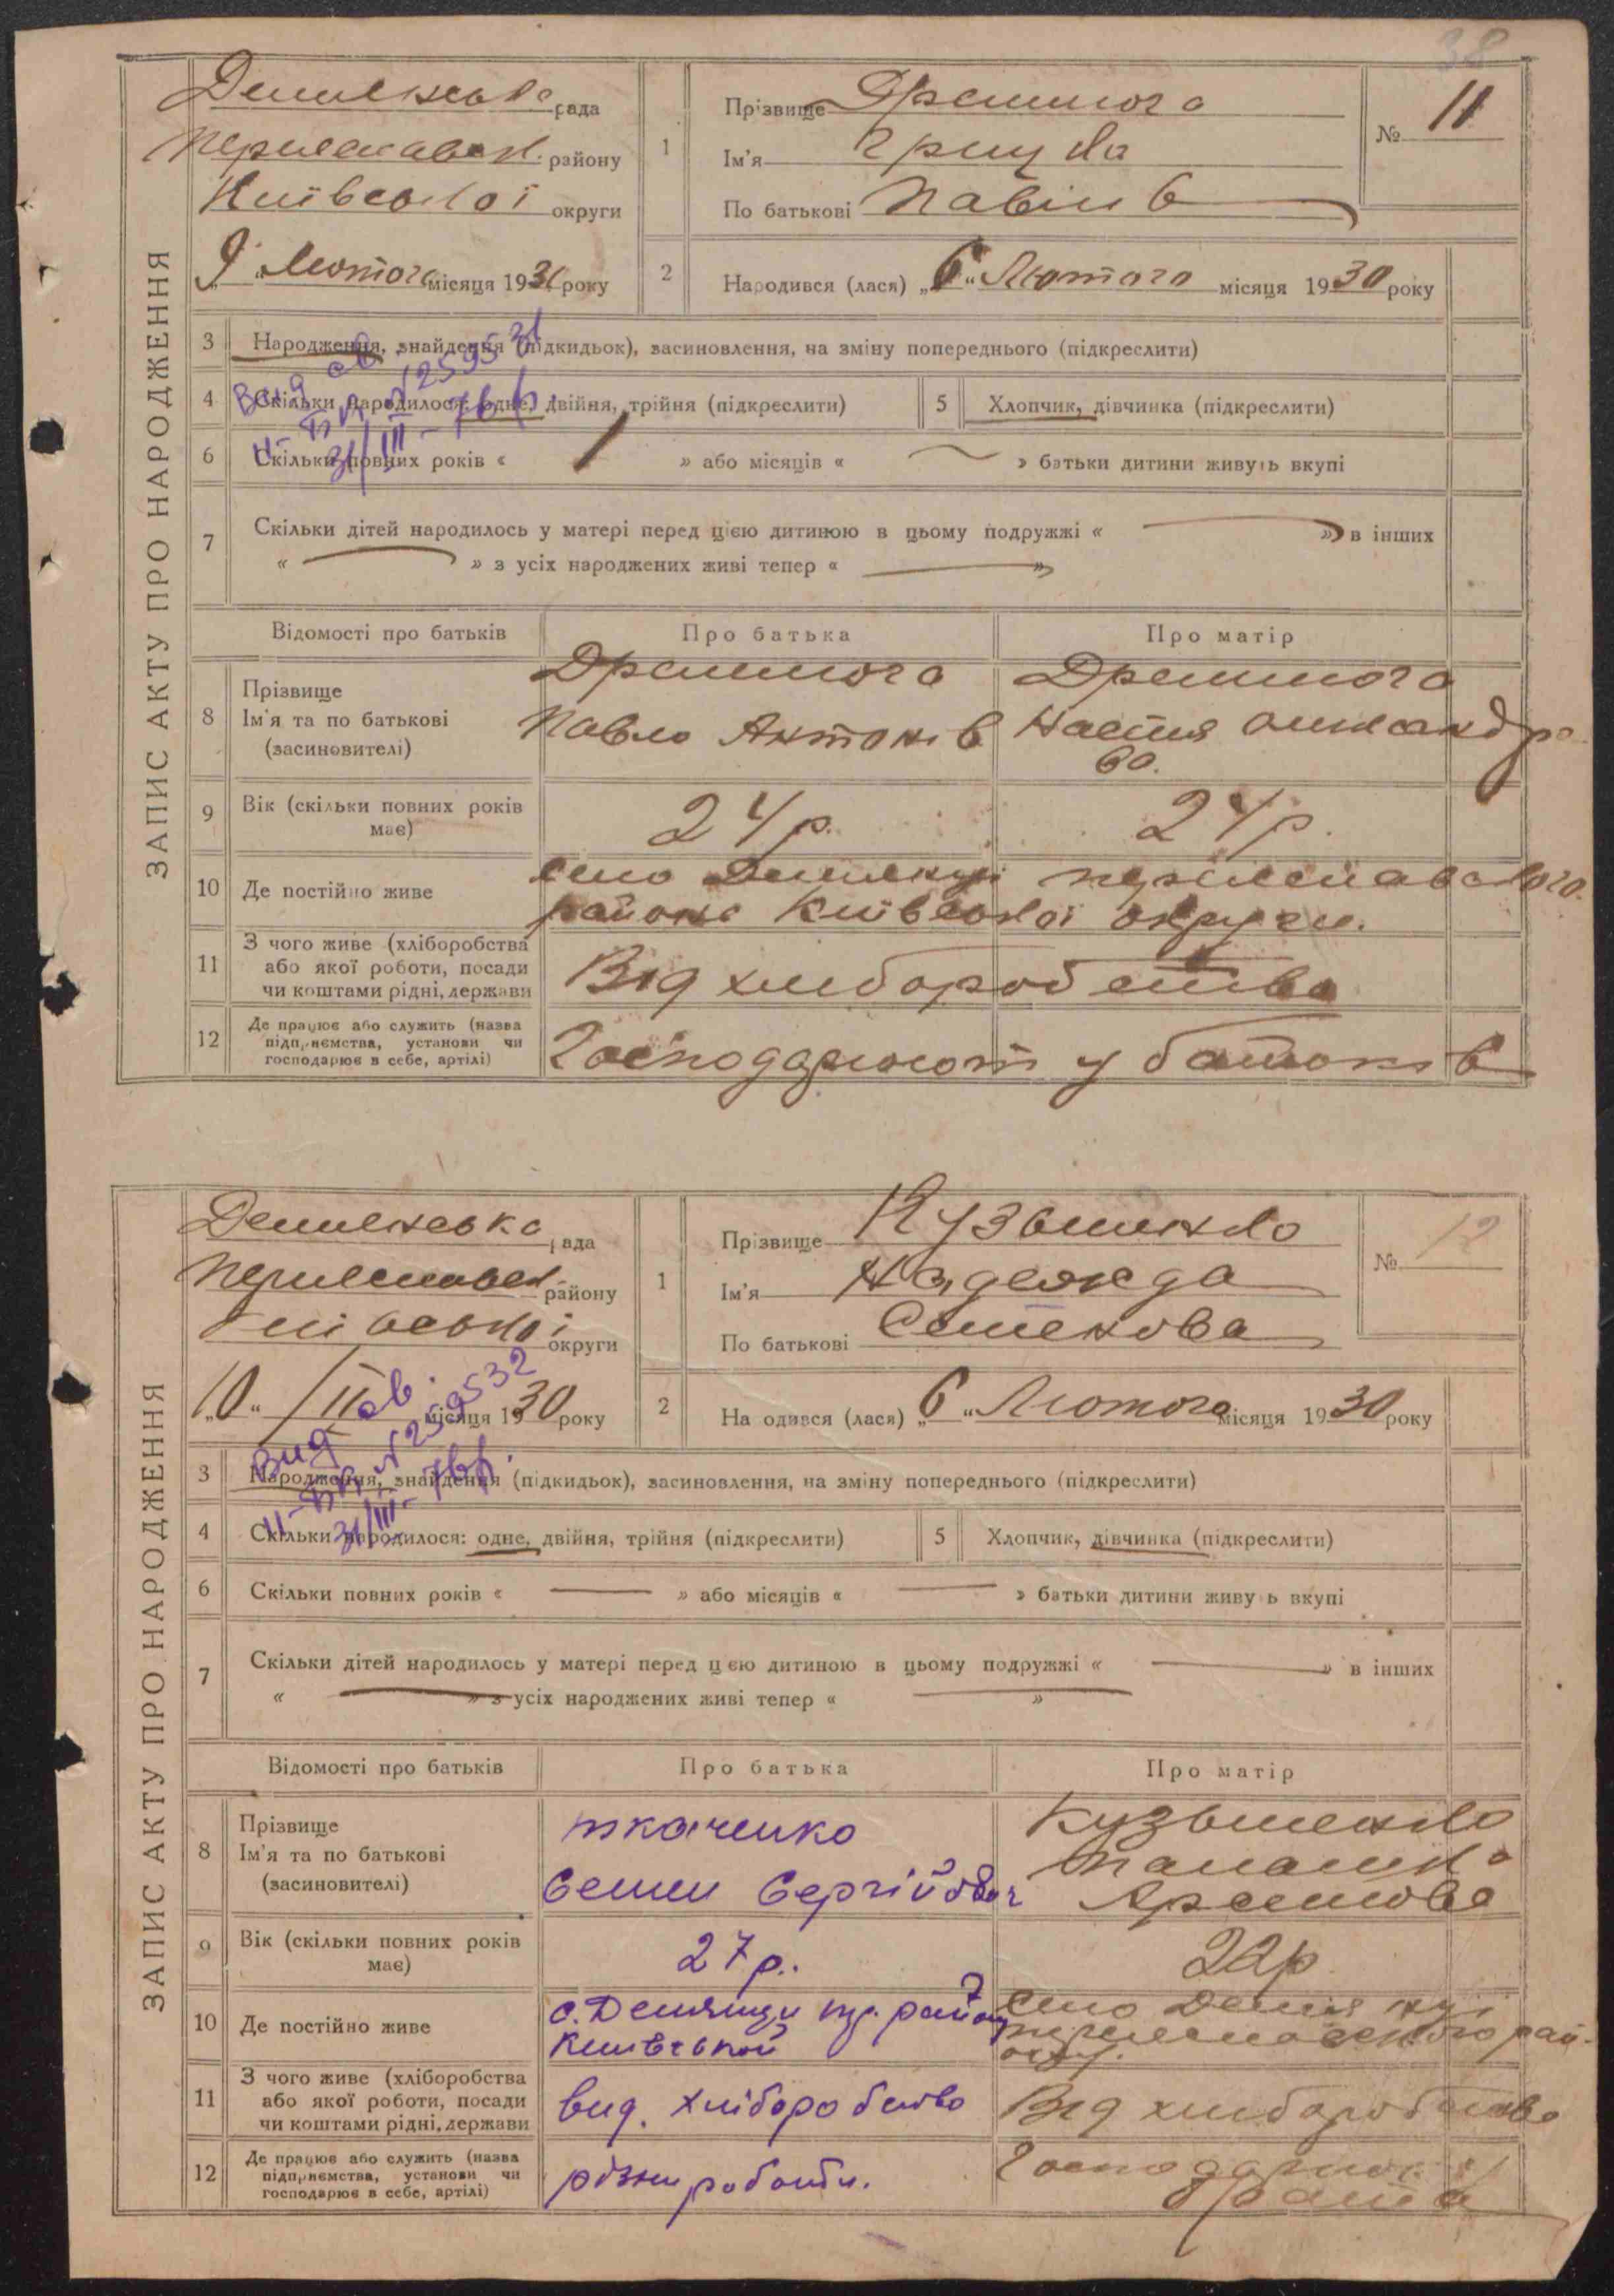 38
ЗАПИС АКТУ ПРО НАРОДЖЕННЯ
рада
району
Київської округи
9 Лютого місяця 1930 року
1
Прізвище Дремлюга
Ім'я Грицько
По батькові Павлів
№ 11
2
Народився (лася) „6“ Лютого місяця 1930 року
3 Народження, знайдення (підкидьок), засиновлення, на зміну попереднього (підкреслити)
4 Скільки народилося: одне, двійня, трійня (підкреслити)
5 Хлопчик, дівчинка (підкреслити)
31/III-
6 Скільки повних років « 1 » або місяців « — » батьки дитини живуть вкупі
7 Скільки дітей народилось у матері перед цією дитиною в цьому подружжі « — » в інших
« — » з усіх народжених живі тепер « — »
Відомості про батьків Про батька Про матір
8 Прізвище
Ім'я та по батькові
(засиновителі)
Дремлюга
Павло Антонів
Дремлюга
Настя Олександро
ва.
9 Вік (скільки повних років має) 24 р. 24 р.
10 Де постійно живе
село
району Київської округи.
11 З чого живе (хліборобства
або якої роботи, посади
чи коштами рідні, держави
Від хліборобства
12 Де працює або служить (назва
підприємства, установи чи
господарює в себе, артілі)
Господарюют у батьків
ЗАПИС АКТУ ПРО НАРОДЖЕННЯ
рада
району
округи
„10“ /II місяця 1930 року
1
Прізвище Кузьменко
Ім'я Надежда
По батькові Семенова
№ 12
2
На одився (лася) „6“ Лютого місяця 1930 року
№ 259532
3 Народження, знайдення (підкидьок), засиновлення, на зміну попереднього (підкреслити)
31/III-
4 Скільки народилося: одне, двійня, трійня (підкреслити)
5 Хлопчик, дівчинка (підкреслити)
6 Скільки повних років « — » або місяців « — » батьки дитини живу ь вкупі
7 Скільки дітей народилось у матері перед цією дитиною в цьому подружжі « — » в інших
« — » з усіх народжених живі тепер « — »
Відомості про батьків Про батька Про матір
8 Прізвище
Ім'я та по батькові
(засиновителі)
ткаченко
Семен Сергійович
Кузьменко
Арсенова
9 Вік (скільки повних років має) 27 р.
10 Де постійно живе
с. Демянци пер. району
село
11 З чого живе (хліборобства
або якої роботи, посади
чи коштами рідні, держави
вид. хліборобство
Від хліборобства
12 Де працює або служить (назва
підприємства, установи чи
господарює в себе, артілі)
різни роботи.
брата